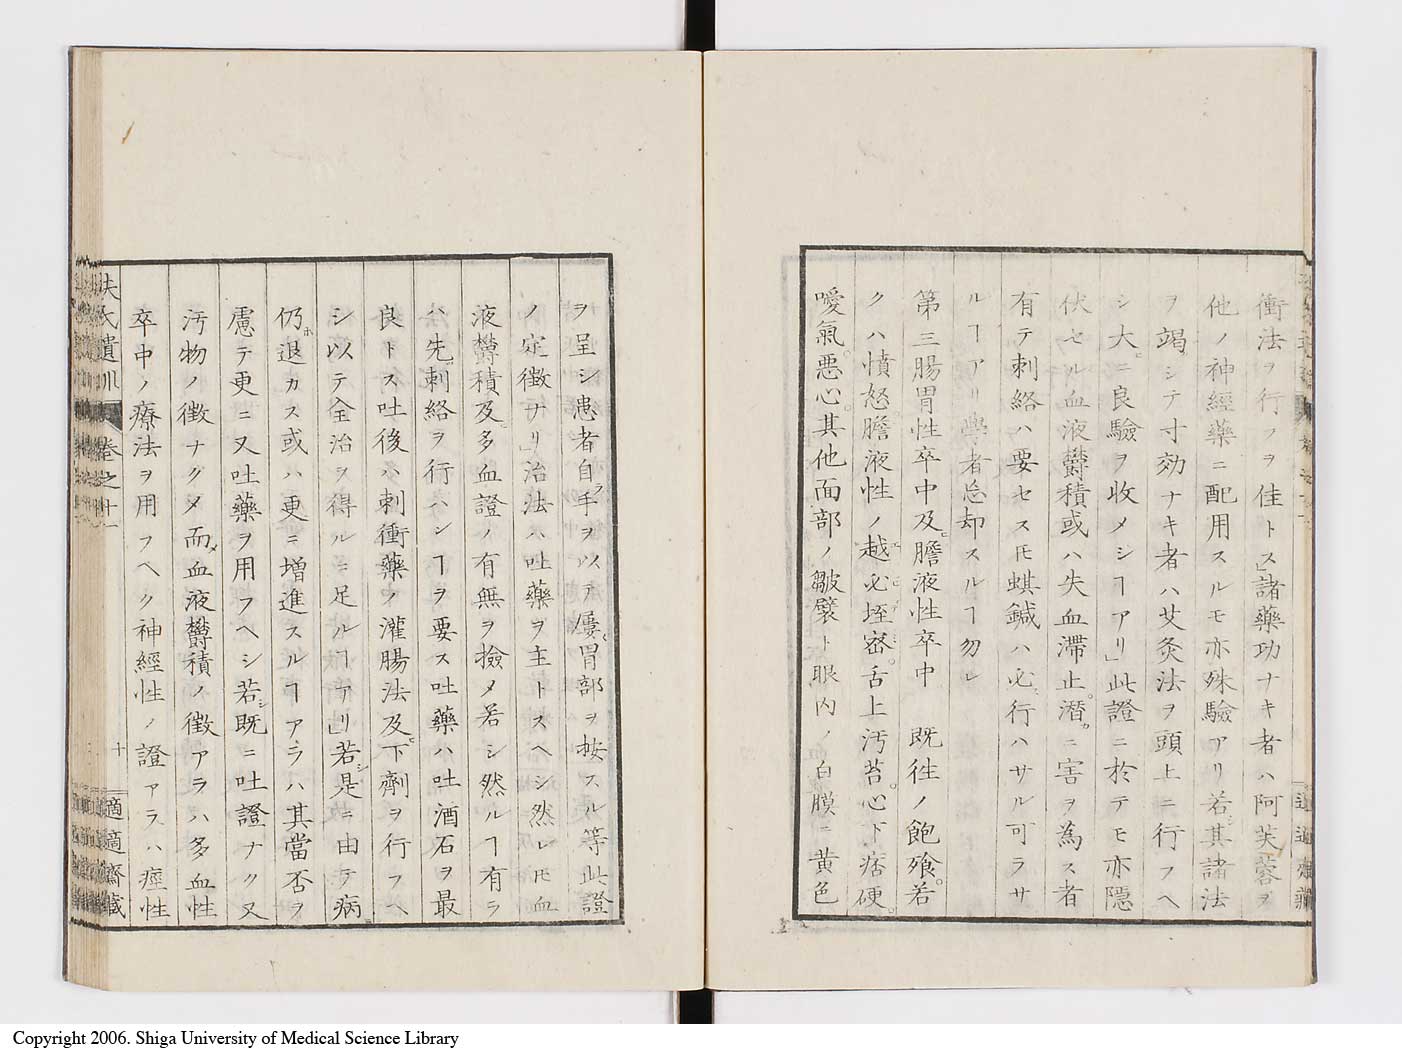 衝法ヲ行フヲ佳トス」諸藥功ナキ者ハ阿芙蓉ヲ
他ノ神經藥ニ配用スルモ亦殊驗アリ若シ其諸法
ヲ竭シテ寸効ナキ者ハ艾灸法ヲ頭上ニ行フヘ
シ大ニ良驗ヲ收メシヿアリ」此證ニ於テモ亦隱
伏セル血液欝積或ハ失血滯止。潛カニ害ヲ為ス者
有テ刺絡ハ要セスㇳモ蜞鍼ハ必ス行ハサル可ラサ
ルヿアリ學者忘却スルヿ勿レ
第三腸胃性卒中及ヒ膽液性卒中 既徃ノ飽飱。若
クハ憤怒。膽液性ノ越必垤密。舌上汚苔。心下痞硬。
噯氣。悪心。其他面部ノ皺襞ト眼內ノ白膜ニ黄色
ヲ呈シ患者自ラ手ヲ以テ屢〻胃部ヲ按スル等此證
ノ定徴ナリ」治法ハ吐藥ヲ主トスヘシ然レㇳモ血
液欝積及ヒ多血證ノ有無ヲ撿メ若シ然ルヿ有ラ
ハ先ツ刺絡ヲ行ハンヿヲ要ス吐藥ハ吐酒石ヲ最
良トス吐後ハ刺衝藥ノ灌腸法及ヒ下劑ヲ行フヘ
シ以テ全治ヲ得ルニ足ルヿアリ」若シ是ニ由テ病
仍ホ退カス或ハ更ニ増進スルヿアラハ其當否ヲ
慮テ更ニ又吐藥ヲ用フヘシ若シ既ニ吐證ナク又
汚物ノ徴ナクメ而メ血液欝積ノ徴アラハ多血性
卒中ノ療法ヲ用フヘク神經性ノ證アラハ痙性
扶氏遺訓 卷之十一 十 適適齋藏